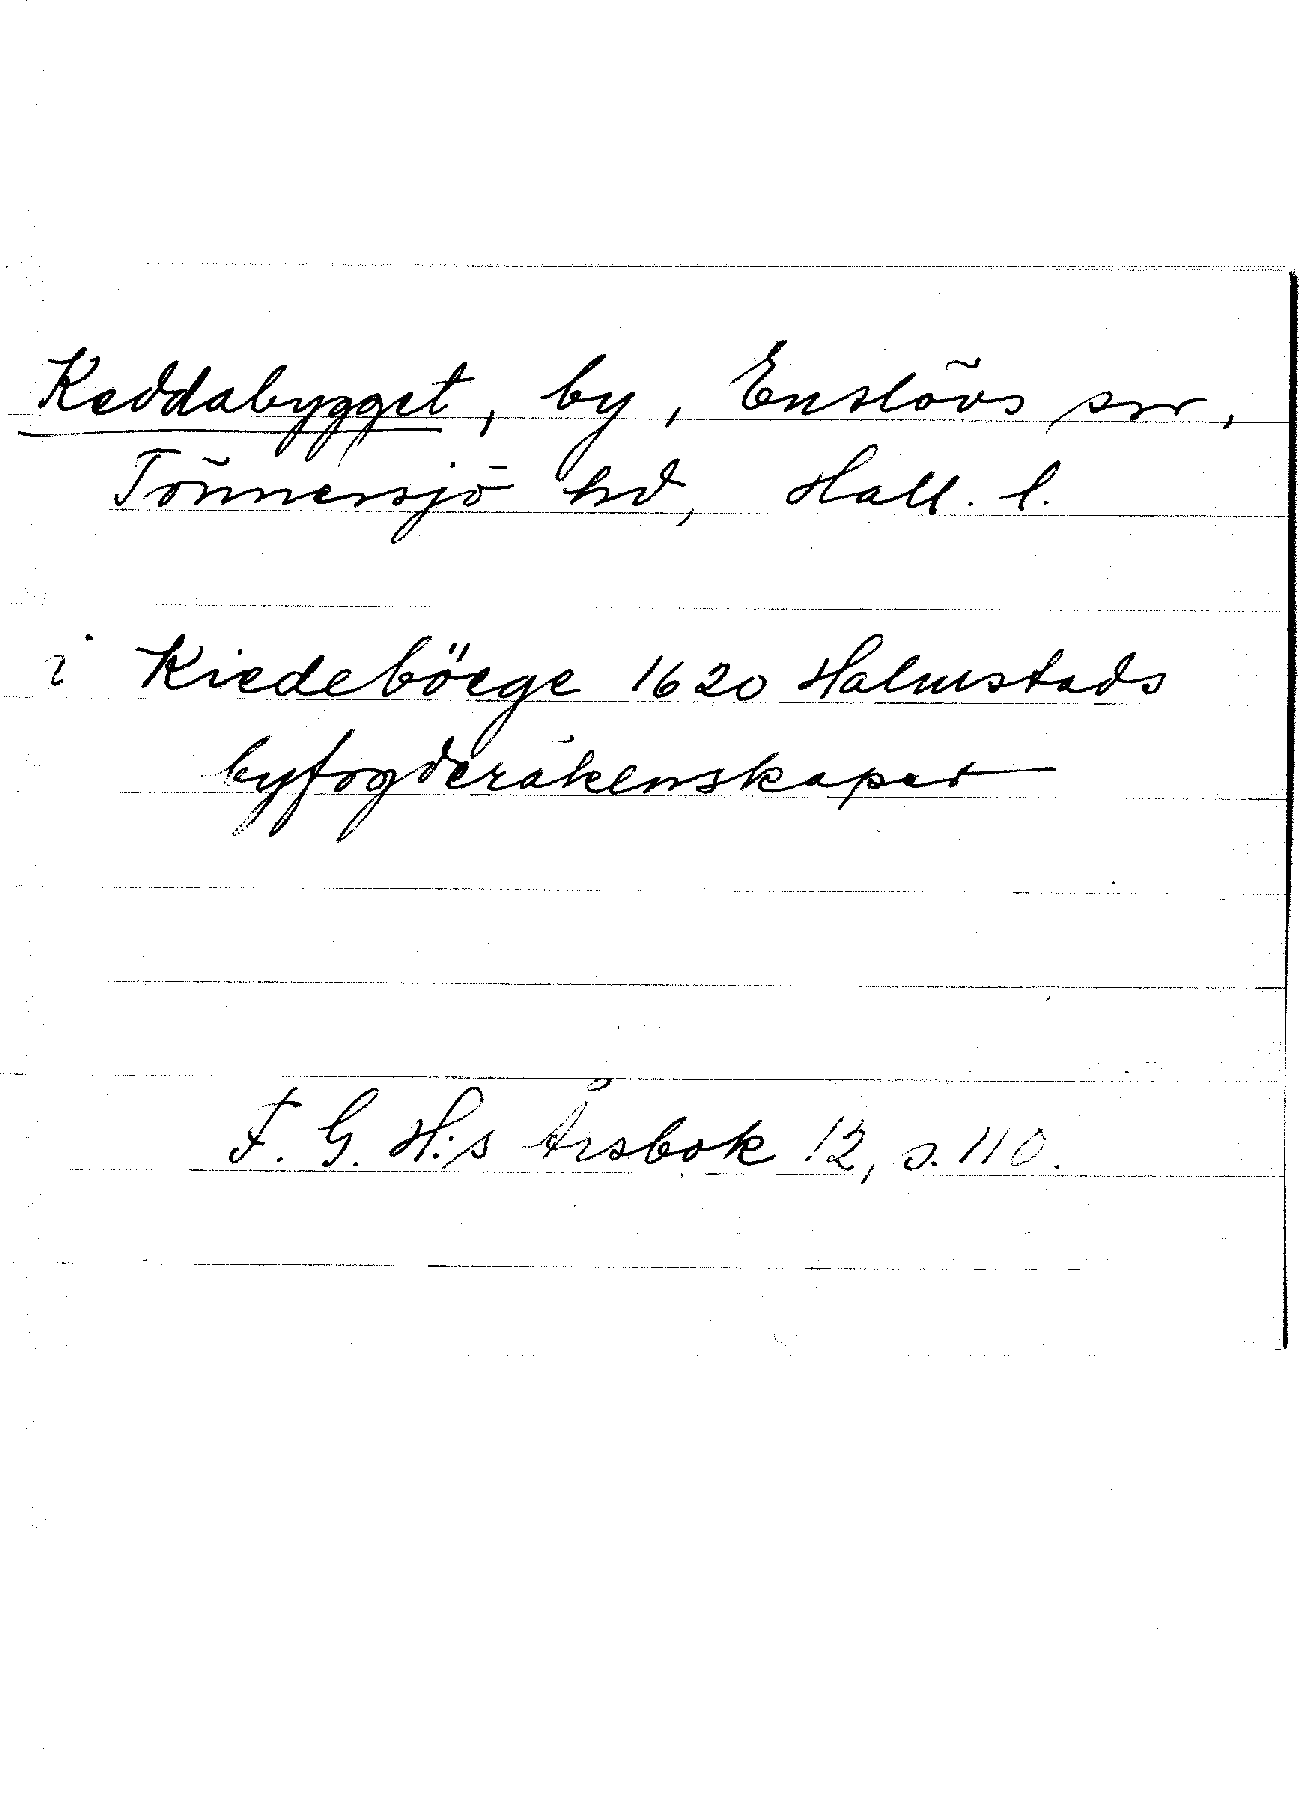 Keddabygget, by, Enslövs sn,
Tönnersjö hd, Hall. l.
i Kiedeböege 1620 Halmstads
byfogderäkenskaper
F. G. H:s Årsbok 12, s. 110.